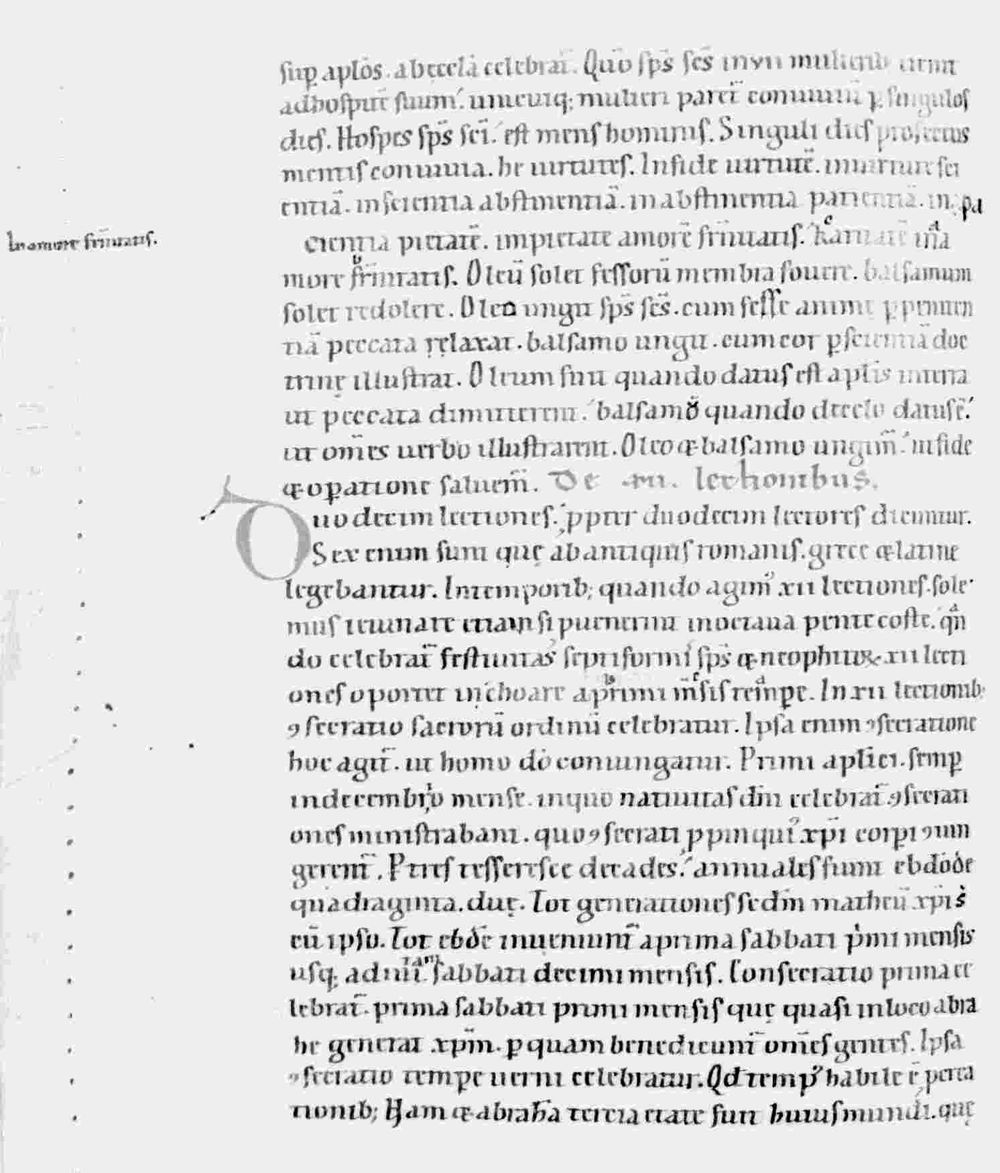 sup aplos. ab eccla celebrat̄. Quo sps scs
ad hospitē suum. unicuiq; mulieri partē conviviū p singulos
dies. Hospes sps sci. est mens hominis. Singuli dies profectus
mentis convivia. he uirtutes. In fide uirtutē. in uirtute sci
entiā. in scientia abstinentiā. in abstinentia patientiā. in pa
In amore frn̄itatis.
cientia pietatē. in pietate amorē frn̄itatis. karitatē in a
more frn̄itatis. Oleū solet fessorū membra fouere. balsamum
solet redolere. Oleo ungit sps̄ scs̄. cum fesse anime p peniten
tiā peccata relaxat. balsamo ungit. cum cor p scientiā doc
trinę illustrat. Oleum fuit quando datus est aplis in terra
ut peccata dimitterent. balsamū quando de celo datus ē.
ut om̄es uerbo illustrarent. Oleo & balsamo ungim̄. in fide
& operatione saluem̄. De .xii. lectionibus.
Duodecim lectiones. ppter duodecim lectores dicuntur.
Sex enim sunt quę ab antiquis romanis. grece & latine
legebantur. In temporib; quando agim' xii lectiones. sole
mus ieiunare etiam si puenerint in octaua pentecoste. qn̄
do celebrat̄ festiuitas septiformis sps̄ & neophitus. xii lecti
ones oportet inchoare a primi mensis tempe. In xii lectionib;
ꝯsecratio sacrorū ordinū celebratur. Ipsa enim ꝯsecratione
hoc agit̄. ut homo dō coniungatur. Primi aplici. semp
in decembrio mense. in quo natiuitas dn̄i celebrat̄ ꝯsecrati
ones ministrabant. quo ꝯsecrati ppinqui' xp̄i corpi ꝯiun
gerent̄. Ptres tesserescedecades. annuales sunt ebdōde
quadraginta. duę. Tot generationes sedm̄ matheū xp̄i s
cū ipso. Tot ebdē inueniunt̄ a prima sabbati pmi mensis
usq; ad sabbati decimi mensis. Consecratio prima ce
lebrat̄. prima sabbati primi mensis quę quasi in loco abra
he generat xp̄m. p quam benedicunt̄ om̄es gentes. Ipsa
ꝯsecratio tempe uerni celebratur. Qd temp' habile ē percā
tionib; Nam & abrahā tercia etate fuit huius mundi. quę